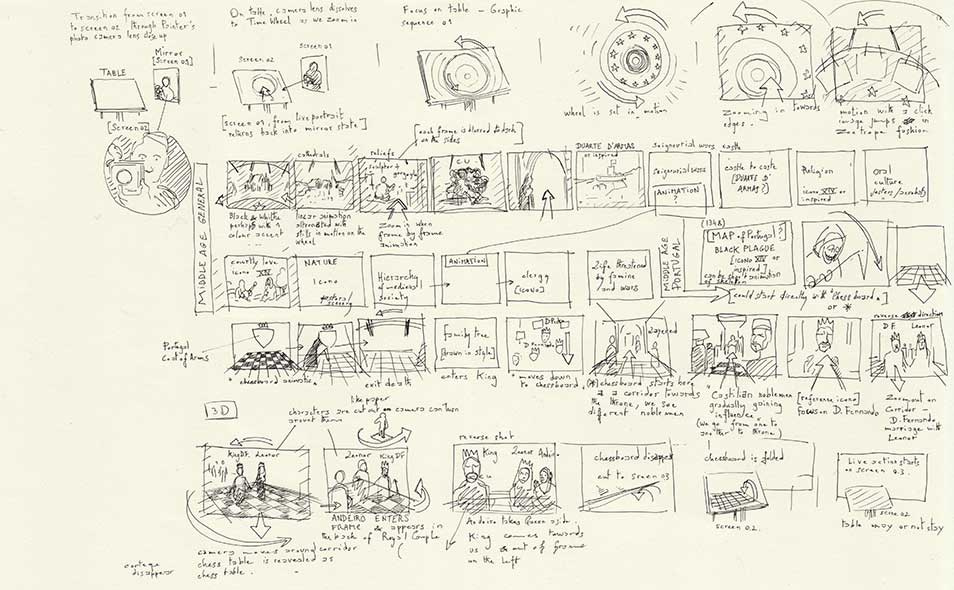 Transition from screen 01
to screen 02 through Painter's
photo camera lens close up
On table, camera lens dissolves
to Time Wheel as we zoom in
Focus on table - Graphic
sequence 01
Mirror
[Screen 01]
TABLE
[Screen 02]
screen 02
screen 01
[screen 01, from live portrait
returns back into mirror state]
[each frame is blurred
on the sides]
wheel is set in motion
Zooming in towards
edges.
motion with a click
image jumps in
Zootrope fashion
MIDDLE AGE GENERAL
cathedrals
reliefs
sculptor +
C.U.
DUARTE D'ARMAS
or inspired
Seigneurial wars
castle
seigneurial wars
ANIMATION?
castle to caste
[DUARTE D'
ARMAS?]
Religion
icono XIV or
inspired
oral
culture
Black & White
perhaps with a
colour accent
...
linear animation
alternated with
stills in motion on the
wheel
Zoom in when
frame by frame
animation
courtly love
icono XIV
NATURE
Icono
pastoral
scenery
Hierarchy
of medieval
society
ANIMATION
clergy
[ICONO]
Life threatened
by famine
and wars
MIDDLE AGE
PORTUGAL
(1348)
[MAP of Portugal?]
BLACK PLAGUE
[ICONO XIV or
inspired]
can be short animation
of skeleton
[could start directly with "chess board"]
or *
Portugal
Coat of Arms
"chessboard animates"
exit death
family tree
[drawn in style]
enters King
"moves down
to chessboard"
(*) chessboard starts here
as a corridor towards
the throne, we see
different noblemen
"Castilian noblemen
gradually gaining
influence"
(we go from one to
another to throne)
[reference icono]
focus on D. Fernando
reverse direction
D.F. Leonor
Zoom out on
Corridor -
D. Fernando
marriage with
Leonor
3D
like paper
characters are cut out - camera can turn
around them
King D.F. Leonor
Leonor King D.F.
camera moves around corridor
chess table is revealed as
chess table.
cortege
disappear
ANDEIRO ENTERS
FRAME & appears in
the back of Royal Couple
reverse shot
King
C.U.
Leonor Andeiro
Andeiro takes Queen aside,
King comes towards
us & out of frame
on the left
chessboard disappears
cut to screen 03
chessboard is folded
screen 02.
Live action starts
on screen 03.
screen 02
table may or not stay